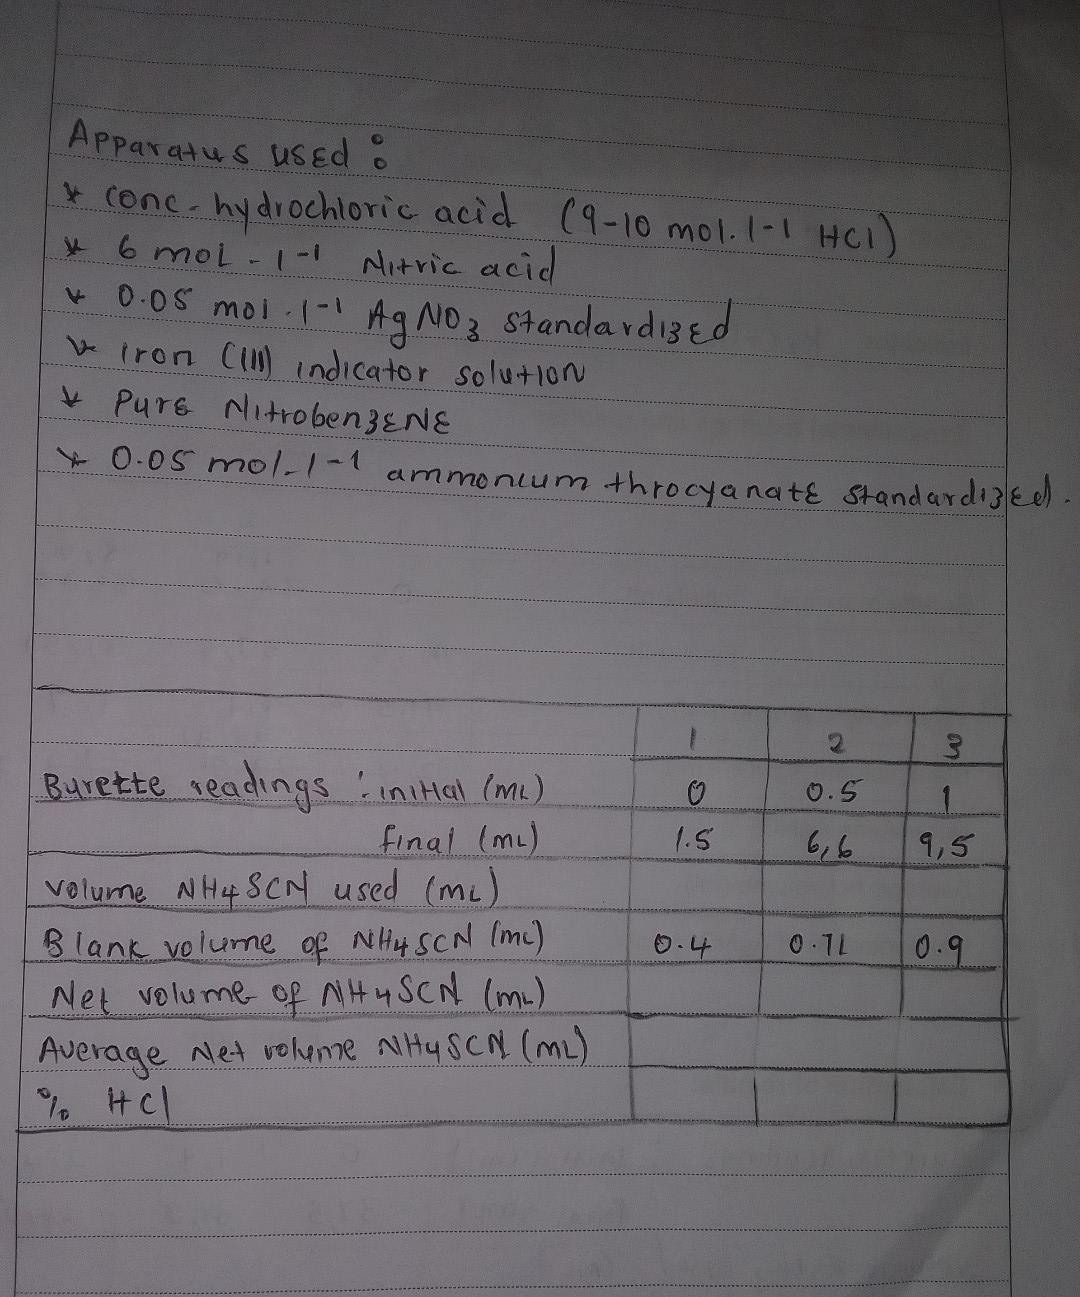 Apparatus used :
* conc - hydrochloric acid (9-10 mol. l-1 HCl)
* 6 mol - l-1 Nitric acid
* 0.05 mol . l-1 AgNO3 standardized
* Iron (III) indicator solution
* Pure NitrobenzENE
* 0.05 mol - l-1 ammonium throcyanate standardized.
1 2 3
Burette readings : initial (mL) 0 0.5 1
final (mL) 1.5 6,6 9,5
volume NH4SCN used (mL)
Blank volume of NH4SCN (mL) 0.4 0.71 0.9
Net volume of NH4SCN (mL)
Average Net volume NH4SCN (mL)
% HCl